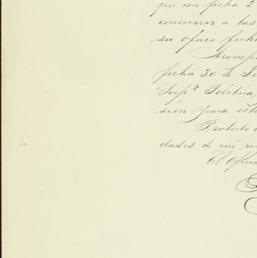 que con fecha 2
concurrir á las
su oficio fecha
Acomp
fecha 30 de
Supª Politica,
sión para est
Protesto
dades de mi
El Oficial